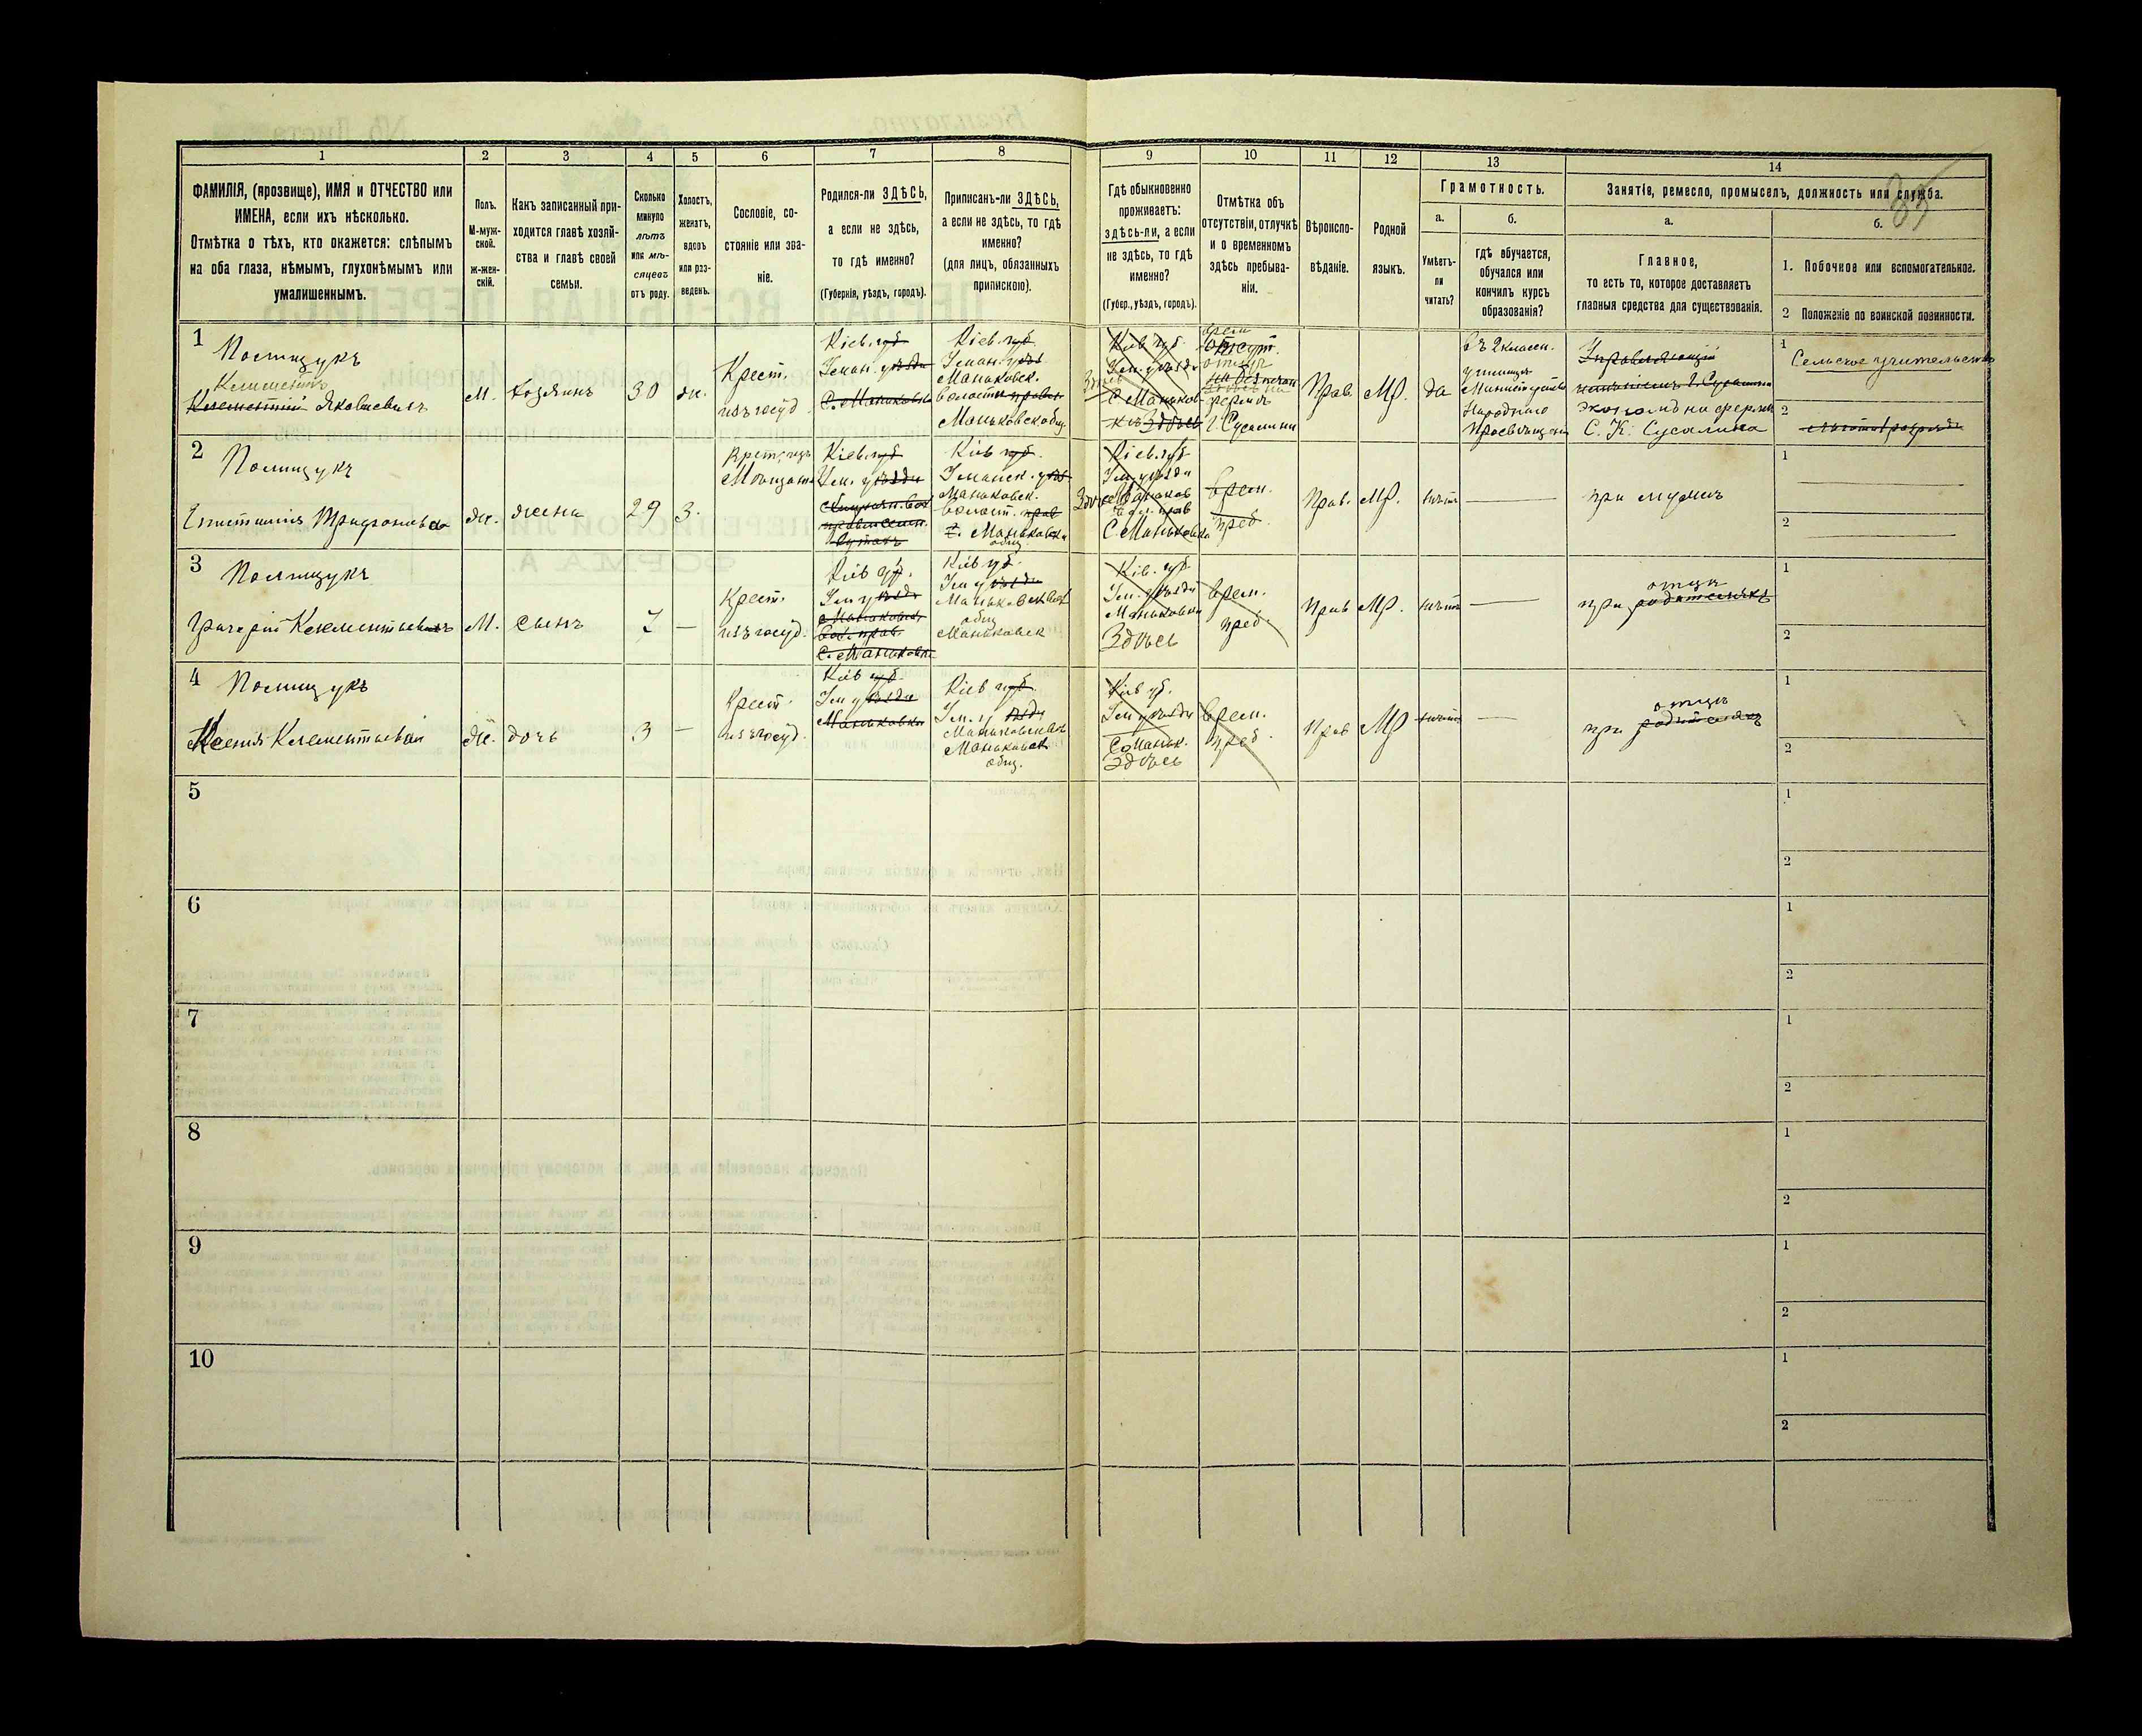 1 2 3 4 5 6 7 8 9 10 11 12 13 14
ФАМИЛІЯ, (прозвище), ИМЯ и ОТЧЕСТВО или
ИМЕНА, если ихъ нѣсколько.
Отмѣтка о тѣхъ, кто окажется: слѣпымъ
на оба глаза, нѣмымъ, глухонѣмымъ или
умалишеннымъ.
Полъ.
М-муж-
ской.
Ж-жен-
скій.
Какъ записанный при-
ходится главѣ хозяй-
ства и главѣ своей
семьи.
Сколько
минуло
лѣтъ
или мѣ-
сяцевъ
отъ роду.
Холостъ,
женатъ,
вдовъ
или раз-
веденъ.
Сословіе, со-
стояніе или зва-
ніе.
Родился-ли ЗДѢСЬ,
а если не здѣсь,
то гдѣ именно?
(Губернія, уѣздъ, городъ).
Приписанъ-ли ЗДѢСЬ,
а если не здѣсь, то гдѣ
именно?
(для лицъ, обязанныхъ
припискою).
Гдѣ обыкновенно
проживаетъ:
здѣсь-ли, а если
не здѣсь, то гдѣ
именно?
(Губер., уѣздъ, городъ).
Отмѣтка объ
отсутствіи, отлучкѣ
и о временномъ
здѣсь пребыва-
ніи.
Вѣроиспо-
вѣданіе.
Родной
языкъ.
Грамотность.
а.
Умѣетъ-
ли
читать?
б.
гдѣ обучается,
обучался или
кончилъ курсъ
образованія?
Занятіе, ремесло, промыселъ, должность или служба.
а.
Главное,
то есть то, которое доставляетъ
главныя средства для существованія.
б.
1. Побочное или вспомогательное.
2 Положеніе по воинской повинности.
1
Полищукъ
Климентій Яковлевичъ
М.
хозяинъ
30
ж.
Крест.
изъ госуд.
Кіев. губ
Уман. уѣзда
С. Маньковка
Кіев. губ.
Уман. уѣз
Маньковск.
волостн правл
Маньковск общ.
Кіев губ.
Ум. уѣзда
С. Маньков
ка Здѣсь
врем
отсут.
г. Сусалини
Прав.
МР.
да
въ 2 классн.
училищѣ
Министерства
Народнаго
Просвѣщенія
Управляющій
С. К. Сусалина
1
Сельское учительство
2
2
Полищукъ
Трифоновна
ж.
жена
29
З.
Крест. изъ
Кіев. губ
Ум. уѣзда
Кіев губ.
Уманск. уѣз
Маньковск.
волост. прав
с. Маньковка
общ
Здѣсь
Кіев. губ
Ум. уѣзда
С. Маньковка
Врем.
преб.
Прав.
МР.
нѣтъ
при мужѣ
1
2
3
Полищукъ
Григорій Климентьевичъ
М.
сынъ
7
Крест.
изъ госуд.
Кіев губ.
Ум уѣзда
Маньковск.
вол. прав.
С. Маньковка
Кіев губ.
Ум уѣзда
Маньковск вол
общ
Маньковск
Кіев. губ
Ум. уѣзда
Маньковка
Здѣсь
Врем.
преб.
Прав
МР.
нѣтъ
отцѣ
при родителяхъ
1
2
4
Полищукъ
Ксенія Климентьевна
Ж.
дочь
3
Крест.
изъ госуд.
Кіев губ
Ум уѣзда
Маньковка
Кіев губ.
Ум. у ѣзда
Маньковск
общ.
Кіев губ.
Ум уѣзда
С. Маньк.
Здѣсь
Врем.
преб.
Прав
МР
нѣтъ
отцѣ
при родителяхъ
1
2
5
1
2
6
1
2
7
1
2
8
1
2
9
1
2
10
1
2